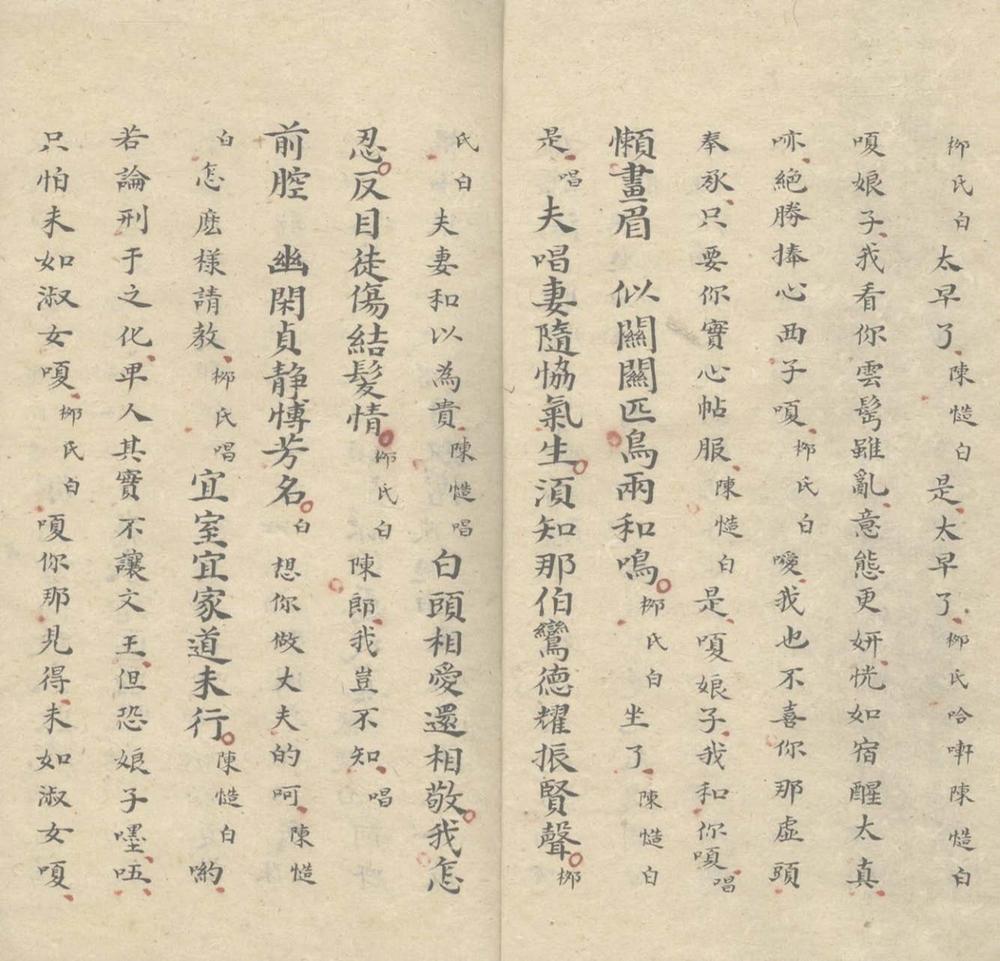 柳氏白太早了陳慥白是太早了柳氏哈啊陳慥白
嗄娘子我看你雲髩雖亂意態更妍恍如宿醒太真
亦絕勝捧心西子嗄柳氏白噯我也不喜你那虛頭
奉承只要你實心帖服陳慥白是嗄娘子我和你嗄唱
懶畫眉 似關關匹鳥兩和鳴柳氏白坐了陳慥白
是唱夫唱妻隨恊氣生須知那伯鸞德耀振賢聲柳
氏白夫妻和以為貴陳慥唱白頭相愛還相敬我怎
忍反目徒傷結髮情柳氏白陳郎我豈不知唱
前腔 幽閑貞静愽芳名白想你做大夫的呵陳慥
白怎麽樣請教柳氏唱宜室宜家道未行陳慥白喲
若論刑于之化卑人其實不讓文王但恐娘子嚜㕶
只怕未如淑女嗄柳氏白嗄你那見得未如淑女嗄